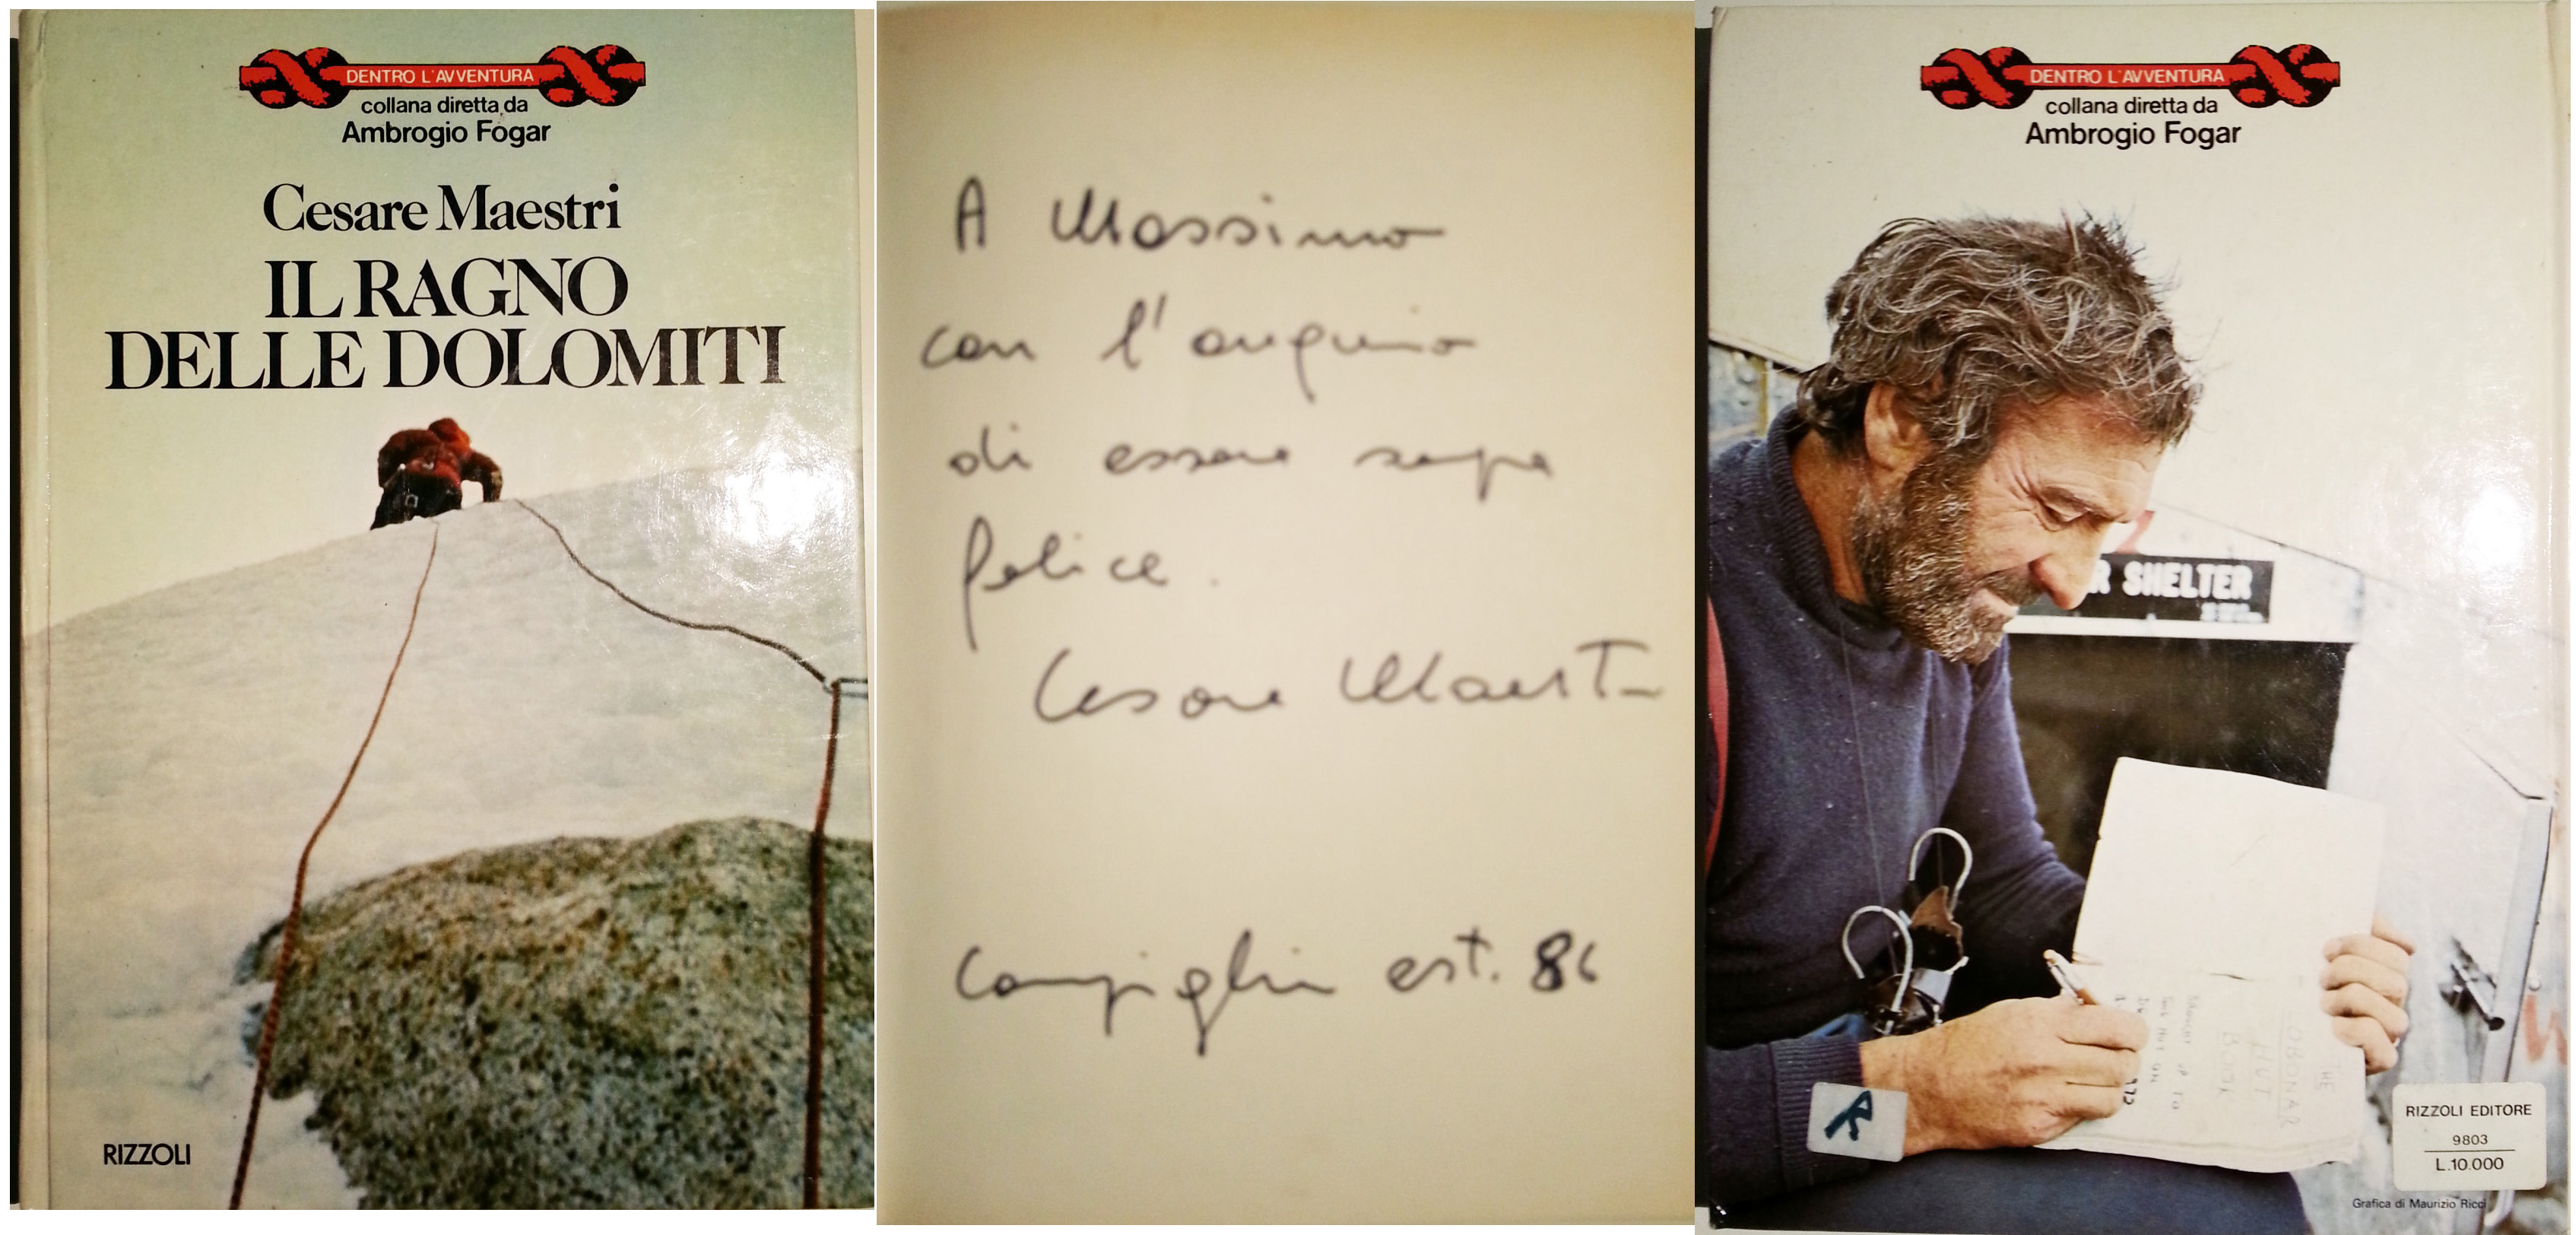 DENTRO L'AVVENTURA
collana diretta da
Ambrogio Fogar
Cesare Maestri
IL RAGNO
DELLE DOLOMITI
RIZZOLI
A Massimo
con l'augurio
di essere sempre
felice.
Cesare Maestri
Campiglio est. 86
DENTRO L'AVVENTURA
collana diretta da
Ambrogio Fogar
R SHELTER
THE
HUT
BOOK
R
RIZZOLI EDITORE
9803
L.10.000
Grafica di Maurizio Ricci